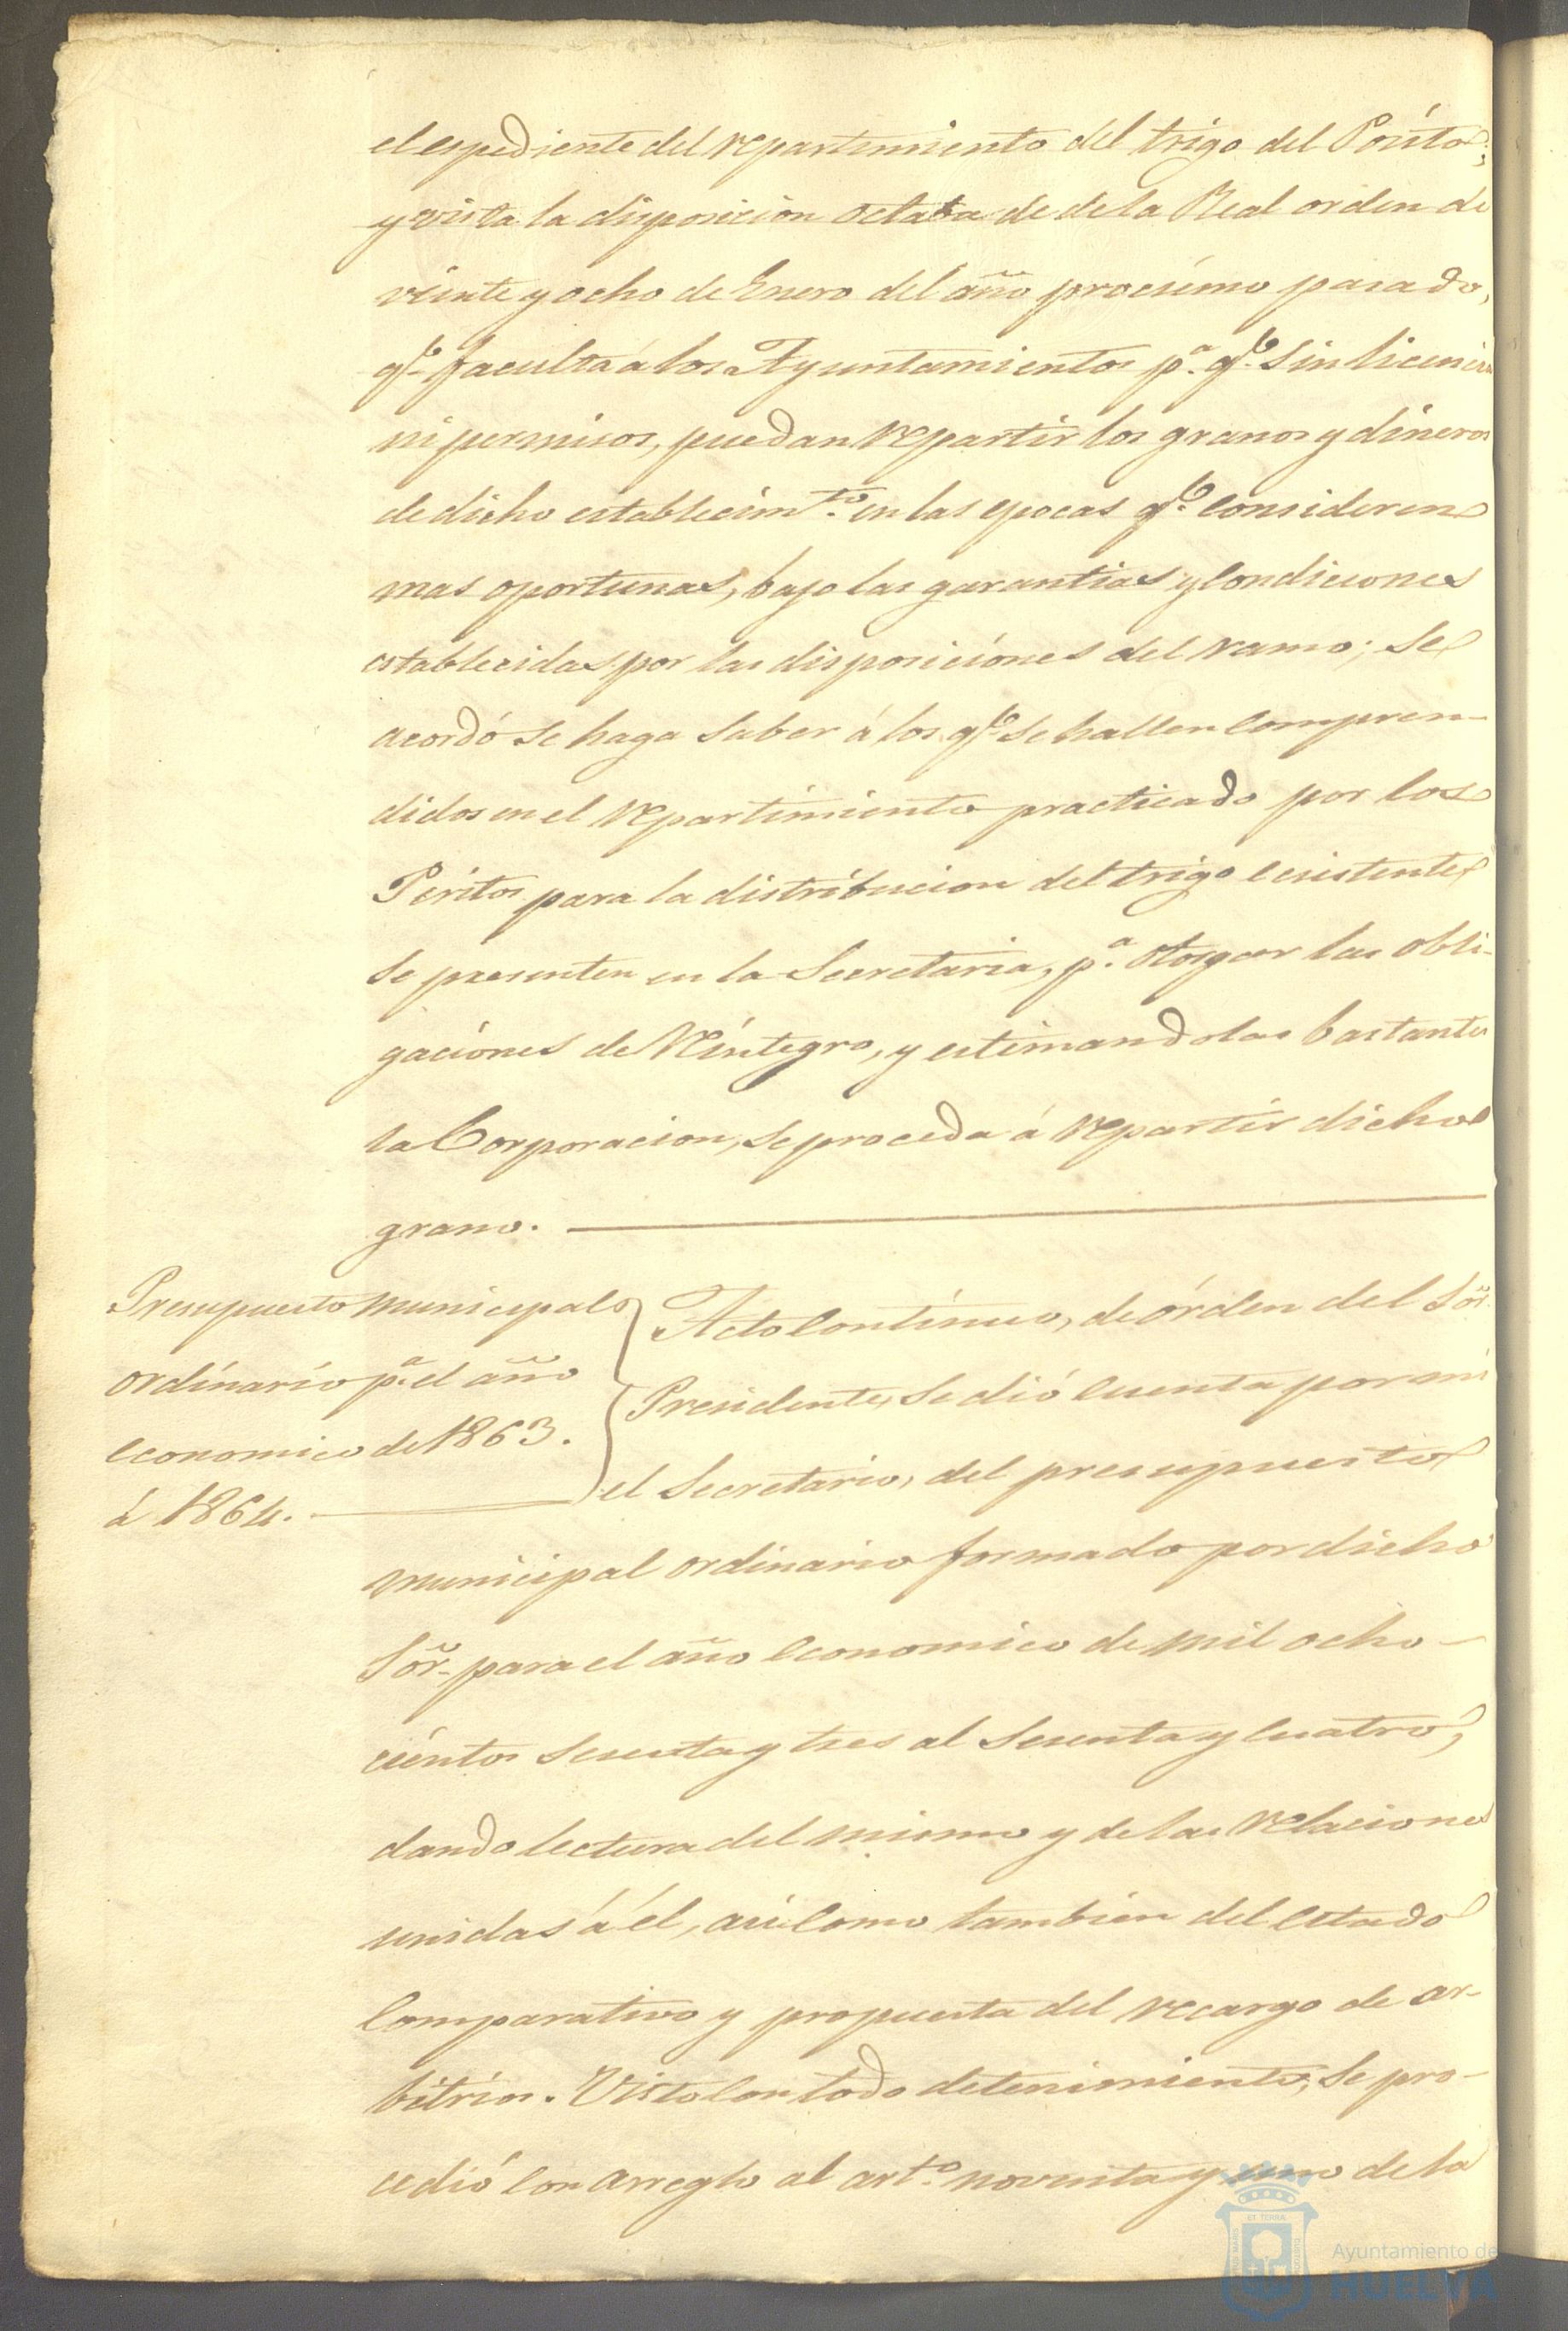 el espediente del repartimiento del trigo del Pósito;
y vista la disposicion octaba de de la Real orden de
veinte y ocho de Enero del año procsimo pasado,
qe. faculta á los Ayuntamientos pa. qe. sin licencia
ni permisos, puedan repartir los granos y dineros
de dicho establecimto. en las epocas qe. consideren
mas oportunas, bajo las garantias y condiciones
establecidas por las disposiciones del ramo; se
acordó se haga saber á los qe. se hallen compren-
didos en el repartimiento practicado por los
Peritos para la distribucion del trigo ecsistente
se presenten en la Secretaria, pa. otorgar las obli-
gaciones de reintegro, y estimandolas bastantes
la Corporacion, se proceda á repartir dicho
grano.
Presupuesto municipal
ordinario pa. el año
economico de 1863.
á 1864.
Acto contínuo, de órden del Sor.
Presidente, se dió cuenta por mi
el Secretario, del presupuesto
municipal ordinario formado por dicho
Sor. para el año economico de mil ocho-
cientos sesenta y tres al sesenta y cuatro,
dando lectura del mismo y de las relaciones
unidas á él, asi como tambien del estado
comparativo y propuesta del recargo de ar-
bitrios. Visto con todo detenimiento, se pro-
cedió con arreglo al arto. noventa y uno de la
Ayuntamiento de
HUELVA